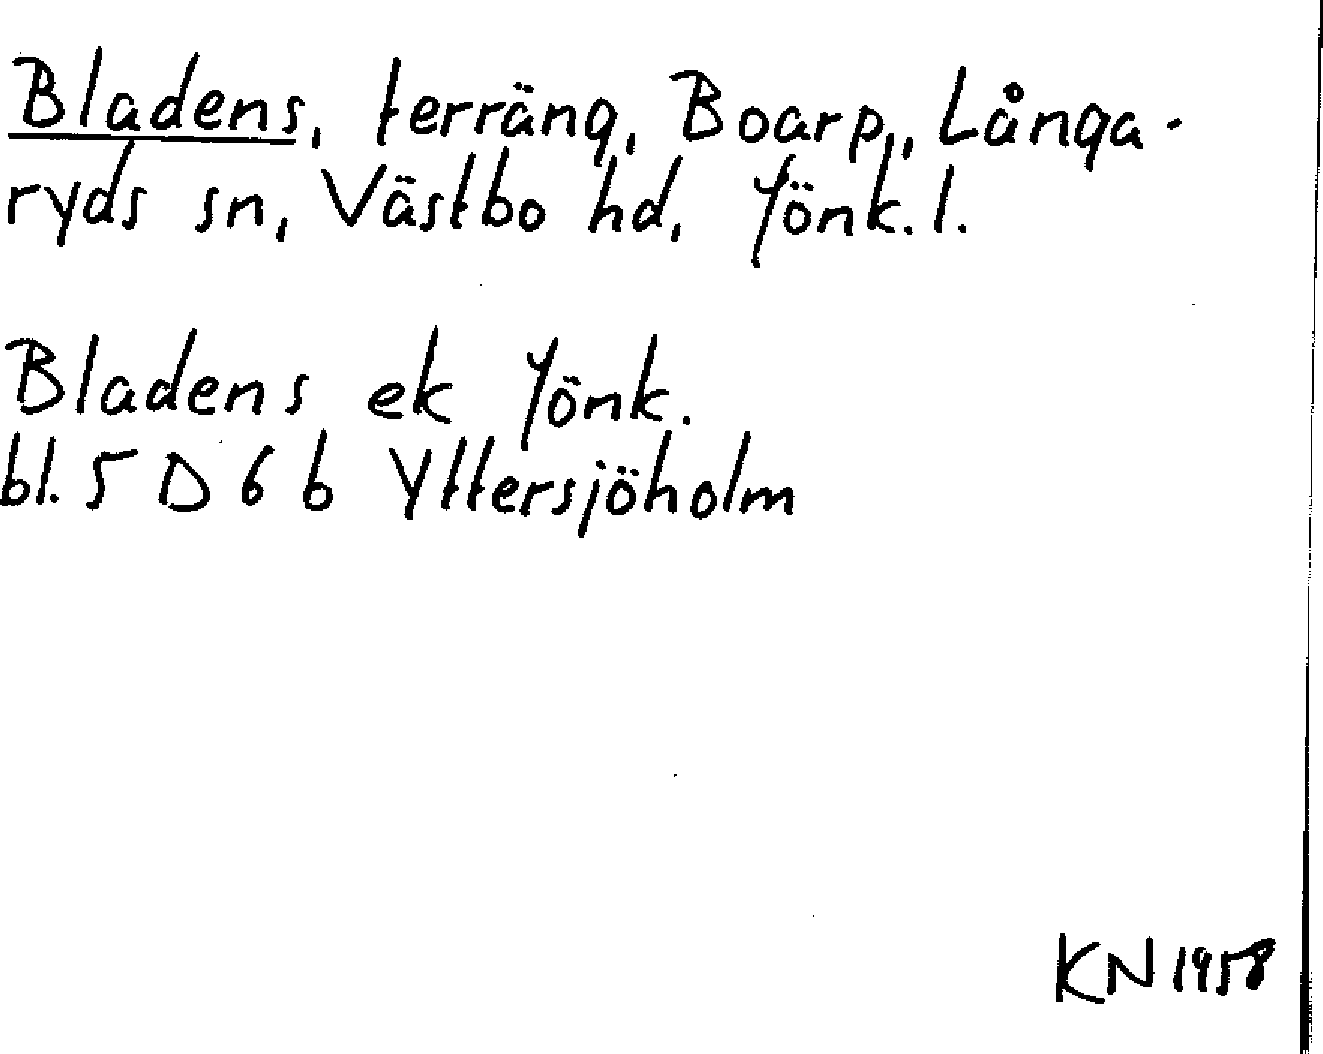 Bladens, terräng, Boarp, Långa-
ryds sn, Västbo hd, Jönk. l.
Bladens ek Jönk.
bl. 5 D 6 b Yttersjöholm
KN 1958